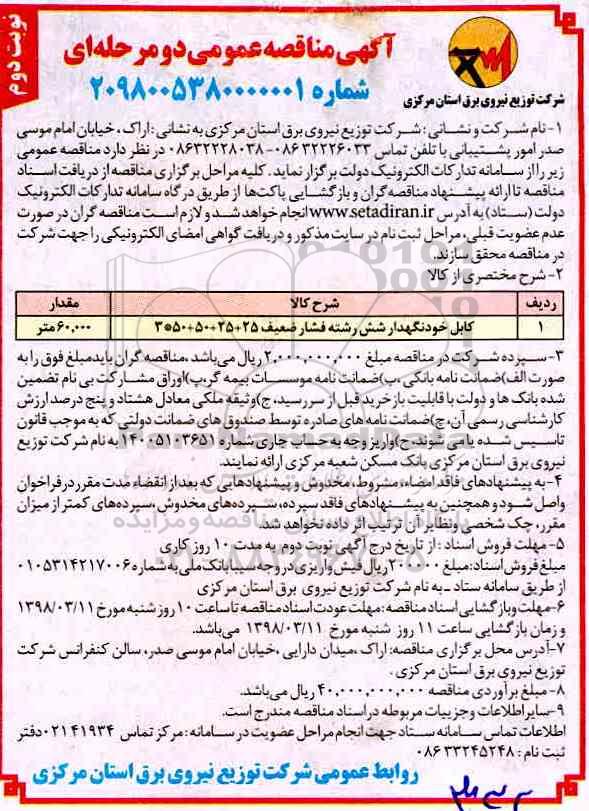 نوبت دوم
آگهی مناقصه عمومی دو مرحله‌ای
شماره ۲۰۹۸۰۰۵۳۸۰۰۰۰۰۰۱
شرکت توزیع نیروی برق استان مرکزی
۱- نام شرکت و نشانی: شرکت توزیع نیروی برق استان مرکزی به نشانی: اراک، خیابان امام موسی
صدر امور پشتیبانی با تلفن تماس ۳۲۲۲۶۰۳۳-۰۸۶ ۰۸۶۳۲۲۲۸۰۳۸ در نظر دارد مناقصه عمومی
زیر را از سامانه تدارکات الکترونیک دولت برگزار نماید. کلیه مراحل برگزاری مناقصه از دریافت اسناد
مناقصه تا ارائه پیشنهاد مناقصه گران و بازگشایی پاکت‌ها از طریق درگاه سامانه تدارکات الکترونیک
دولت (ستاد) به آدرس www.setadiran.ir انجام خواهد شد و لازم است مناقصه گران در صورت
عدم عضویت قبلی، مراحل ثبت نام در سایت مذکور و دریافت گواهی امضای الکترونیکی را جهت شرکت
در مناقصه محقق سازند.
۲- شرح مختصری از کالا
ردیف شرح کالا مقدار
۱ کابل خودنگهدار شش رشته فشار ضعیف ۲۵+۲۵+۵۰+۵۰*۳ ۶۰,۰۰۰ متر
۳- سپرده شرکت در مناقصه مبلغ ۲,۰۰۰,۰۰۰,۰۰۰ ریال می‌باشد، مناقصه گران باید مبلغ فوق را به
صورت الف) ضمانت نامه بانکی، ب) ضمانت نامه موسسات بیمه گر، پ) اوراق مشارکت بی نام تضمین
شده بانک ها و دولت با قابلیت بازخرید قبل از سررسید، ج) وثیقه ملکی معادل هشتاد و پنج درصد ارزش
کارشناسی رسمی آن، چ) ضمانت نامه های صادره توسط صندوق های ضمانت دولتی که به موجب قانون
تاسیس شده یا می شوند، ح) واریز وجه به حساب جاری شماره ۱۴۰۰۵۱۰۳۶۵۱ به نام شرکت توزیع
نیروی برق استان مرکزی بانک مسکن شعبه مرکزی ارائه نمایند.
۴- به پیشنهادهای فاقد امضاء، مشروط، مخدوش و پیشنهادهایی که بعد از انقضاء مدت مقرر در فراخوان
واصل شود و همچنین به پیشنهادهای فاقد سپرده، سپرده‌های مخدوش، سپرده‌های کمتر از میزان
مقرر، چک شخصی و نظایر آن ترتیب اثر داده نخواهد شد.
۵- مهلت فروش اسناد: از تاریخ درج آگهی نوبت دوم به مدت ۱۰ روز کاری
مبلغ فروش اسناد: مبلغ ۲۰۰,۰۰۰ ریال فیش واریزی در وجه سیبا بانک ملی به شماره ۰۱۰۵۳۱۴۲۱۷۰۰۶
از طریق سامانه ستاد - به نام شرکت توزیع نیروی برق استان مرکزی
۶- مهلت و بازگشایی اسناد مناقصه: مهلت عودت اسناد مناقصه تا ساعت ۱۰ روز شنبه مورخ ۱۳۹۸/۰۳/۱۱
و زمان بازگشایی ساعت ۱۱ روز شنبه مورخ ۱۳۹۸/۰۳/۱۱ می‌باشد.
۷- آدرس محل برگزاری مناقصه: اراک، میدان دارایی، خیابان امام موسی صدر، سالن کنفرانس شرکت
توزیع نیروی برق استان مرکزی.
۸- مبلغ برآوردی مناقصه ۴۰,۰۰۰,۰۰۰,۰۰۰ ریال می‌باشد.
۹- سایر اطلاعات و جزییات مربوطه در اسناد مناقصه مندرج است.
اطلاعات تماس سامانه ستاد جهت انجام مراحل عضویت در سامانه: مرکز تماس ۰۲۱۴۱۹۳۴ دفتر
ثبت نام: ۰۸۶۳۳۲۴۵۲۴۸
روابط عمومی شرکت توزیع نیروی برق استان مرکزی